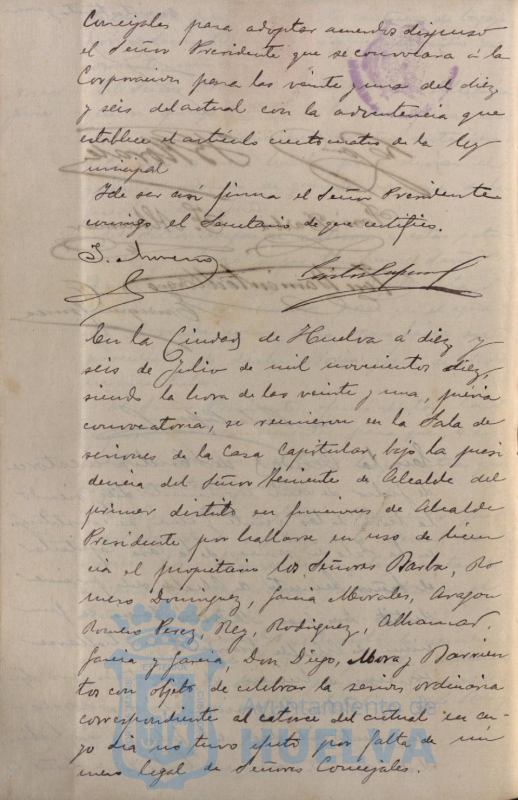 Concejales para adoptar acuerdos dispuso
el Señor Presidente que se convocara á la
Corporacion para las veinte y una del diez
y seis del actual con la advertencia que
establece el artículo ciento cuatro de la ley
municipal
Y de ser asi firma el Señor Presidente
conmigo el Secretario de que certifico.
J. Moreno
En la Ciudad de Huelva á diez y
seis de Julio de mil novecientos diez,
siendo la hora de las veinte y una, prévia
convocatoria, se reunieron en la Sala de
sesiones de la Casa Capitular bajo la presi
dencia del Señor Teniente de Alcalde del
primer distrito en funciones de Alcalde
Presidente por hallarse en uso de licen
cia el propietario los Señores Barba, Ro
mero Dominguez, Garcia Morales, Aragon
Romero Perez, Rey, Rodriguez, Alhamar,
Garcia y Garcia, Don Diego, Mora y Barrien
tos con objeto de celebrar la sesion ordinaria
correspondiente al catorce del actual en cu
yo dia no tuvo efecto por falta de nú
mero legal de Señores Concejales.
Ayuntamiento de
HUELVA